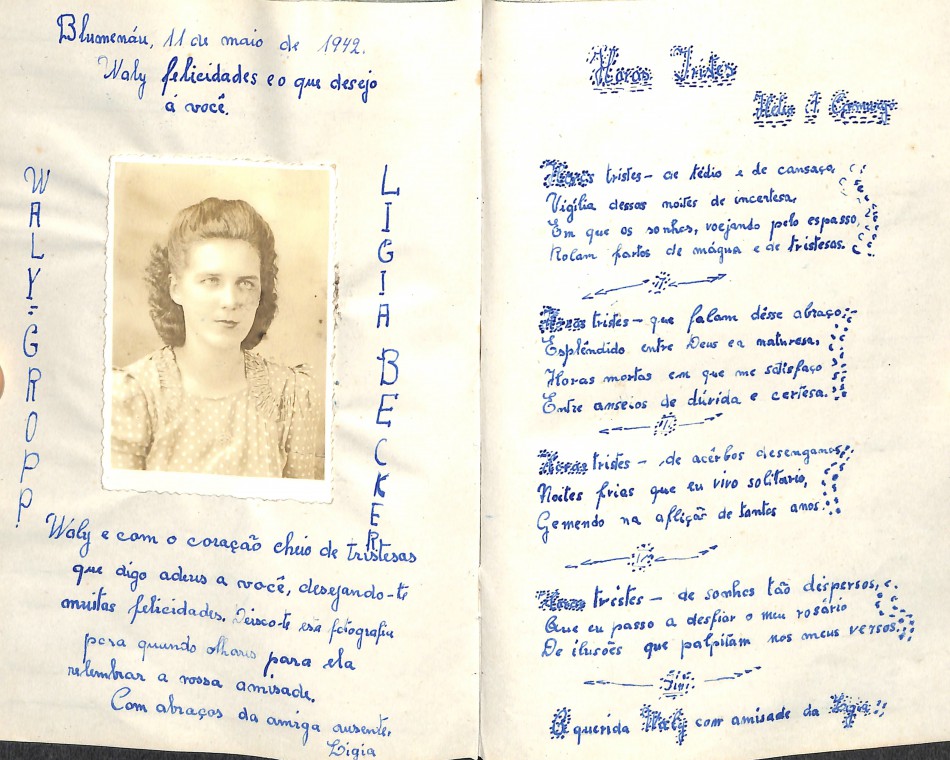 Blumenáu, 11 de maio de 1942.
Waly felicidades e o que desejo
á você.
WALY=GROPP
LIGIA BECKER
Waly e com o coração cheio de tristesas
que digo adeus a você, desejando-te
muitas felicidades. Deixo-te esa fotografia
para quando olhares para ela
relembrar a nossa amisade.
Com abraços da amiga ausente.
Ligia
Horas Tristes
Horas tristes — de tédio e de cansaço,
Vigília dessas noites de incertesa,
Em que os sonhos, voejando pelo espasso,
Rolam fartos de mágua e de tristesas.
Horas tristes — que falam désse abraço
Esplêndido entre Deus e a naturesa,
Horas mortas em que me satisfaço
Entre anseios de dúvida e certesa.
Horas tristes — de acérbos desenganos
Noites frias que eu vivo solitario,
Gemendo na aflição de tantos anos.
Horas tristes — de sonhos tão dispersos,
Que eu passo a desfiar o meu rosário
De ilusões que palpitam nos meus versos.
Fim
A querida Waly com amisade da Ligia